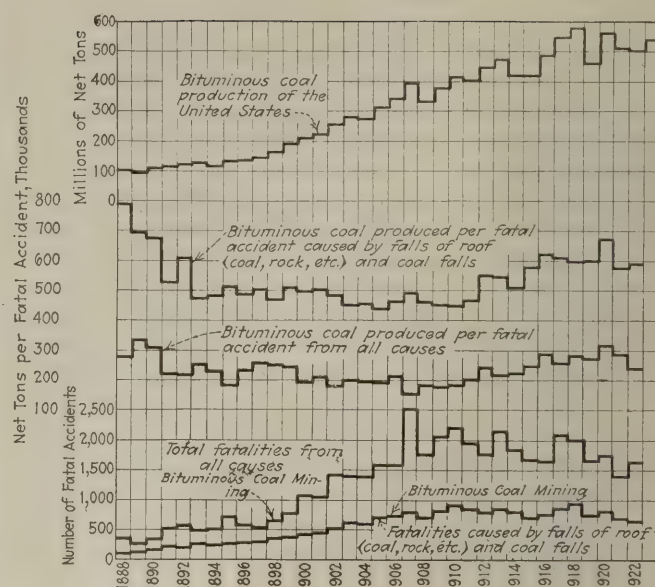 Millions of Net Tons
600
500
400
300
200
100
0
Bituminous coal
production of the
United States
Net Tons per Fatal Accident, Thousands
800
700
600
500
400
300
200
100
Bituminous coal produced per fatal
accident caused by falls of roof
(coal, rock, etc.) and coal falls
Bituminous coal produced per fatal
accident from all causes
Number of Fatal Accidents
2,500
2,000
1,500
1,000
500
0
Total fatalities from
all causes
Bituminous Coal Min-
ing
Bituminous Coal Mining
Fatalities caused by falls of roof
(coal, rock, etc.) and coal falls
1888
1890
1892
1894
1896
1898
1900
1902
1904
1906
1908
1910
1912
1914
1916
1918
1920
1922